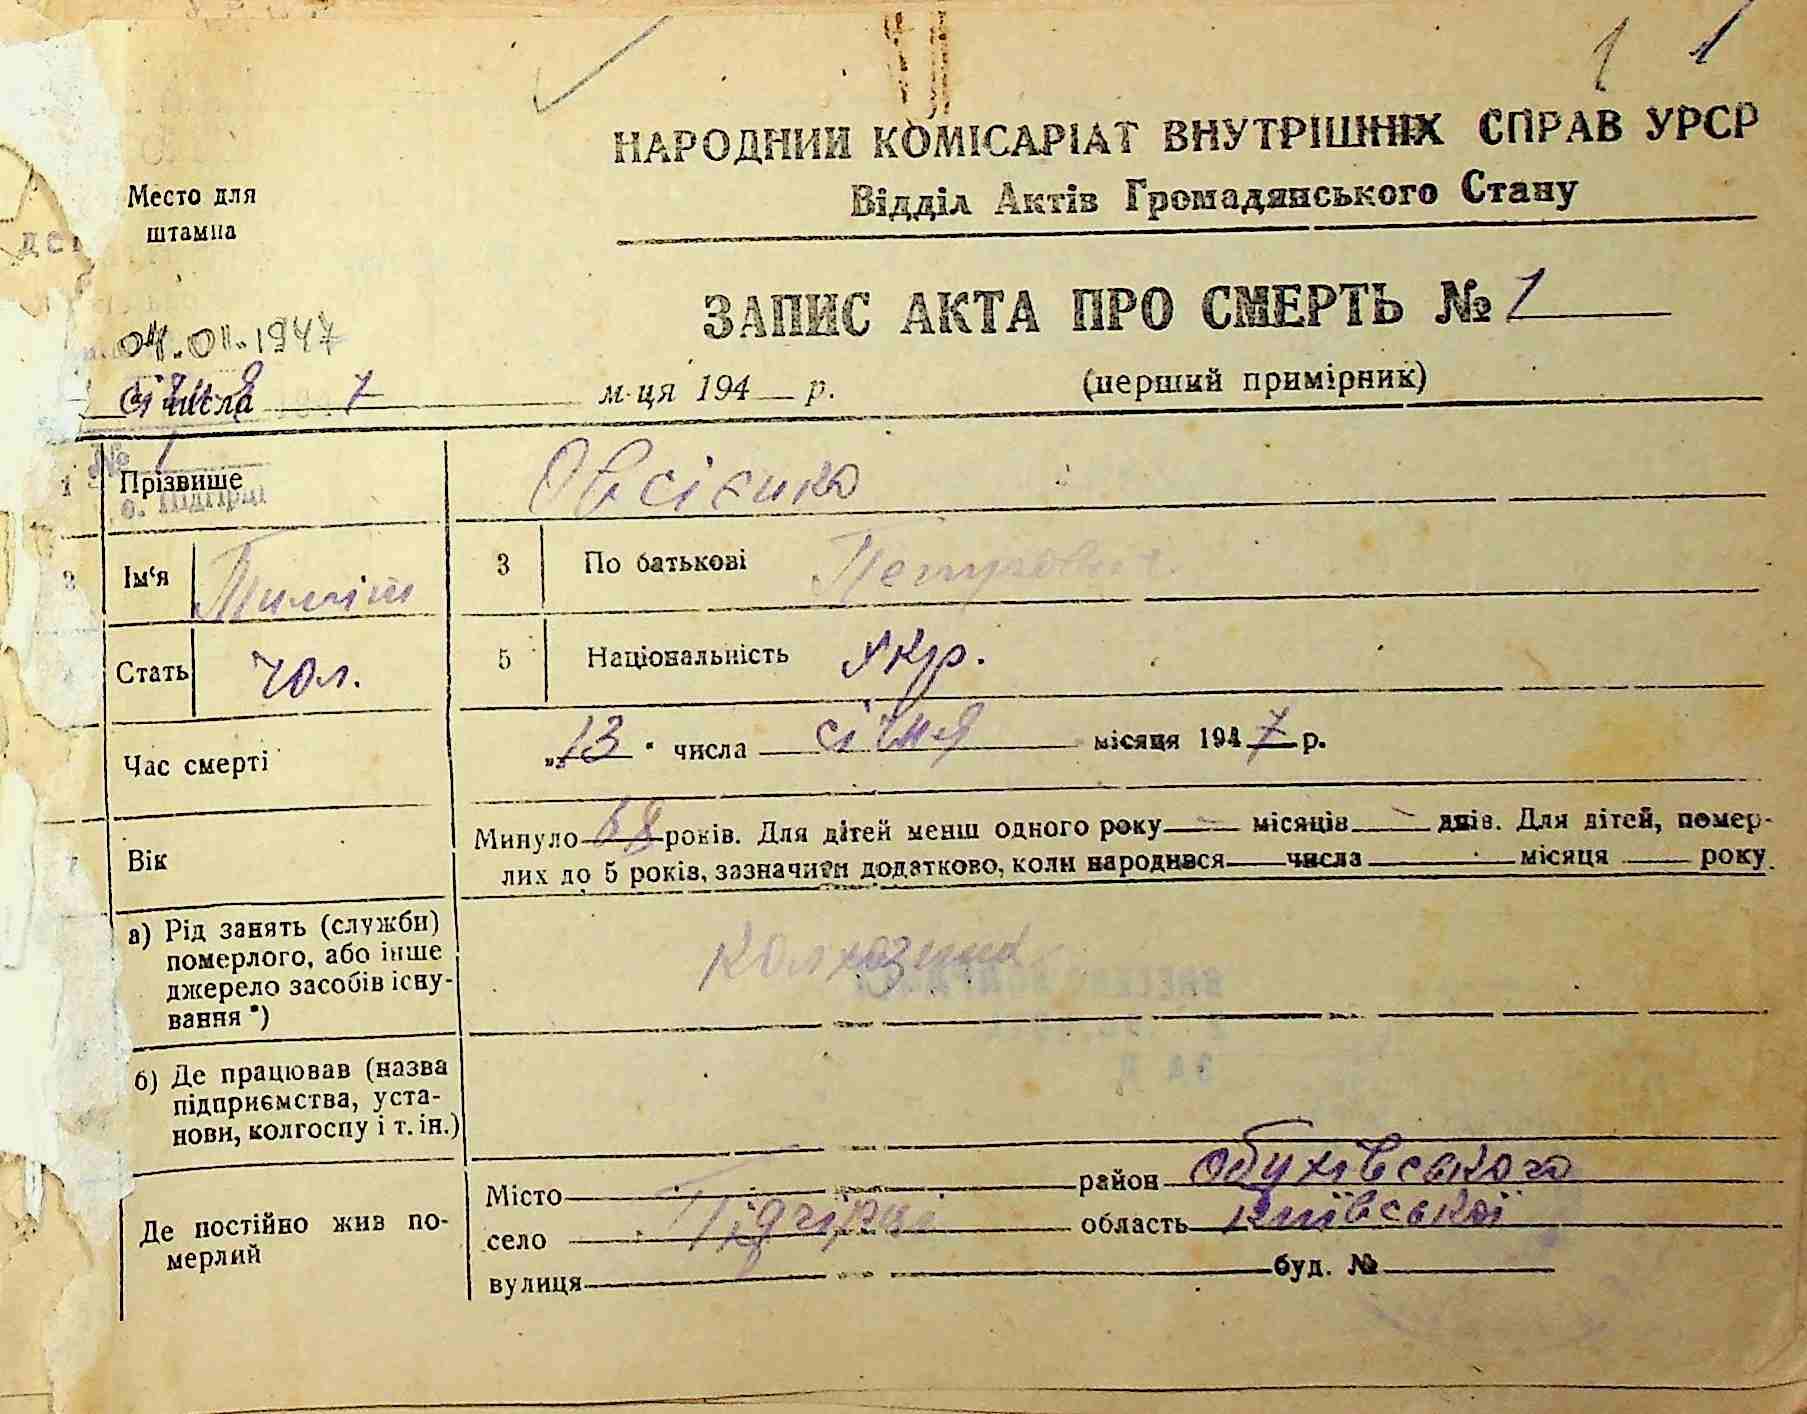 1 1
НАРОДНИЙ КОМІСАРІАТ ВНУТРІШНІХ СПРАВ УРСР
Відділ Актів Громадянського Стану
Место для
штампа
ЗАПИС АКТА ПРО СМЕРТЬ № 1
04.01.1947
січня числа 7 м-ця 194 р. (перший примірник)
№ 1
1 Прізвище Овсієнко
с. Підгірці
Ім'я Тиміш 3 По батькові Петрович
Стать чол. 5 Національність Укр.
Час смерті „13" числа січня місяця 1947 р.
Вік Минуло 68 років. Для дітей менш одного року — місяців — днів. Для дітей, помер-
лих до 5 років, зазначити додатково, коли народився числа місяця року
а) Рід занять (служби)
померлого, або інше
джерело засобів існу-
вання *)
Колхозник
б) Де працював (назва
підприємства, уста-
нови, колгоспу і т. ін.)
Де постійно жив по-
мерлий
Місто район Обухівського
село Підгірці область Київської
вулиця буд. №